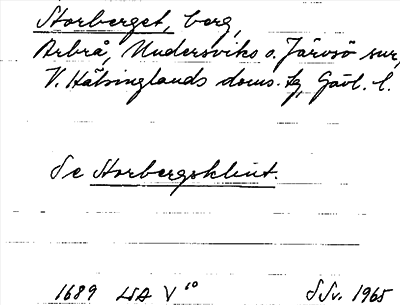 Storberget, berg,
Arbrå, Undersviks o. Järvsö snr,
V. Hälsinglands doms. tg, Gävl. l.
Se Storbergsklint.
1689 LSA V¹⁰ S Sv. 1965